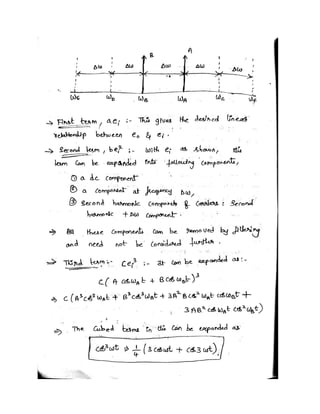 B A
Δω Δω Δω Δω Δω
ωE ωD ωB ωA ωC ωF
→ First term, aei :- This gives the desired linear
relationship between eo & ei.
→ Second term, bei² :- With ei as shown, this
term can be expanded into following components,
① a dc component
② a component at frequency Δω,
③ Second harmonic components of carriers : Second
harmonic + Δω component.
→ All these components can be removed by filtering
and need not be considered further.
→ Third term:- cei³ :- It can be expanded as:-
c( A cosωAt + B cosωBt)³
⇒ c (A³cos³ωAt + B³cos³ωBt + 3A²B cos²ωAt cosωBt +
3AB² cosωAt cos²ωBt)
⇒ The cubed terms in this can be expanded as
cos³ωt = 1/4 (3cosωt + cos3ωt).